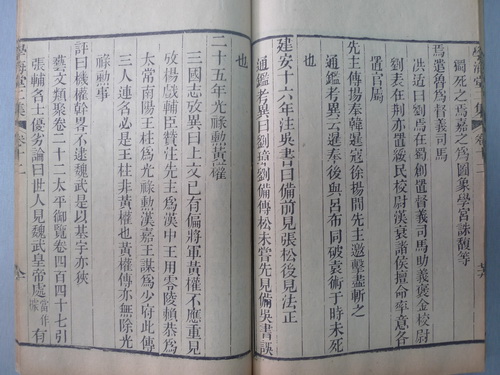 獨死之焉嘉之爲圖象學宮誅馥等
焉遣魯爲督義司馬
洪适曰劉焉在蜀創置督義司馬助義褒金校尉
劉表在荆亦置綏民校尉漢衰諸侯擅命率意各
置官屬
先主傳楊奉韓暹寇徐揚間先主邀擊盡斬之
通鑑考異云暹奉後與呂布同破袁術于時未死
也
建安十六年注吳書曰備前見張松後見法正
通鑑考異曰劉璋劉備傳松未嘗先見備吳書誤
也
二十五年光祿勳黃權
三國志攷異曰上文已有偏將軍黃權不應重見
攷揚戲輔臣贊注先主爲漢中王用零陵賴恭爲
太常南陽王柱爲光祿勳漢嘉王謀爲少府此傳
三人連名必是王柱非黃權也黃權傳亦無除光
祿勳事
評曰機權幹畧不逮魏武是以基宇亦狹
藝文類聚卷二十二太平御覽卷四百四十七引
張輔名士優劣論曰世人見魏武皇帝處當作據有